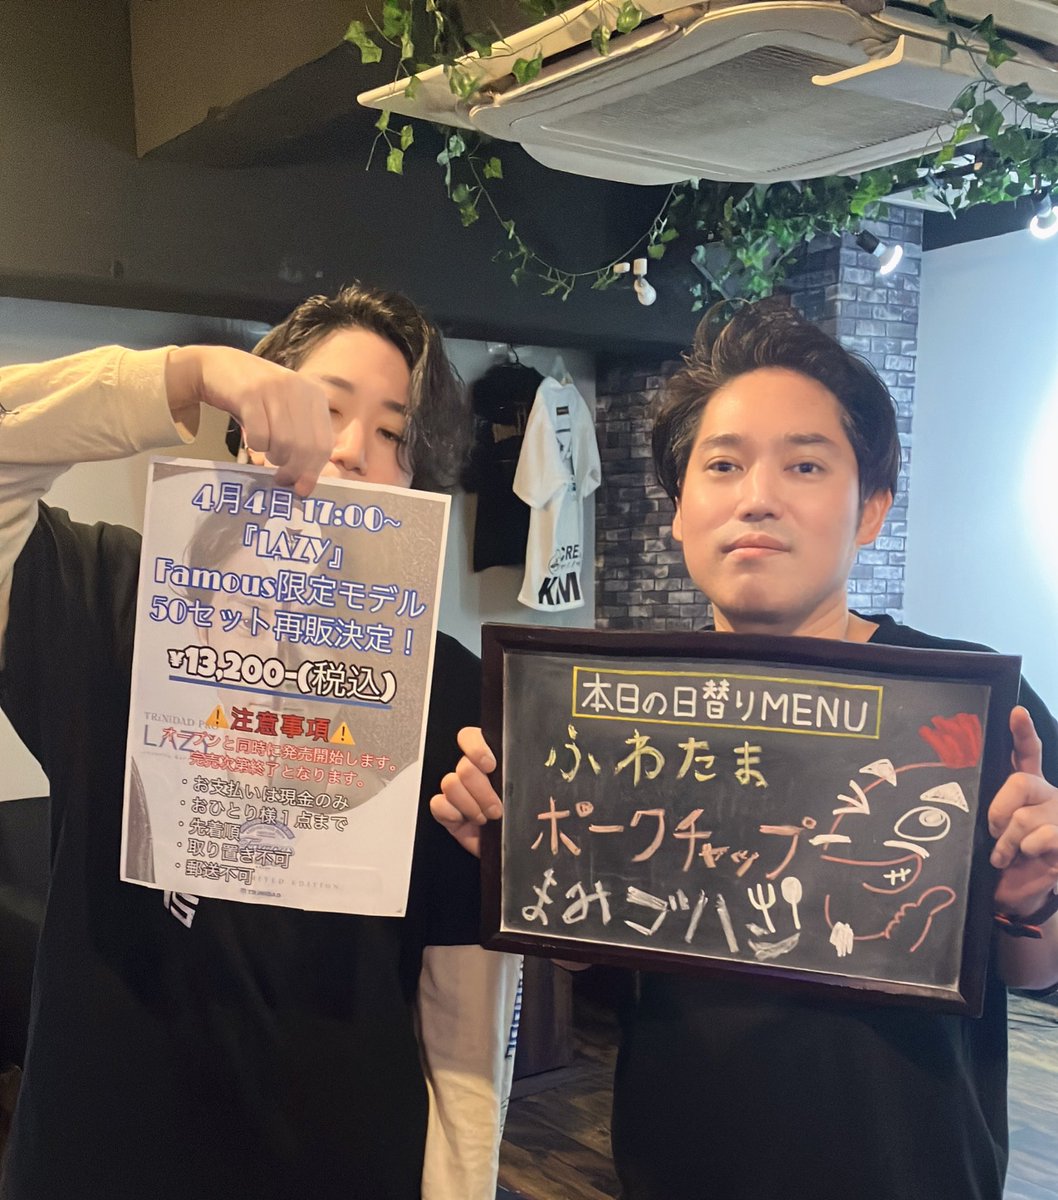 4月4日 17:00~
『LAZY』
Famous限定モデル
50セット再販決定！
¥13,200-(税込)
⚠注意事項⚠
オープンと同時に発売開始します。
完売次第終了となります。
・お支払いは現金のみ
・おひとり様１点まで
・先着順
・取り置き不可
・郵送不可
TRiNiDAD PRO
LAZY
LIMITED EDITION
TRiNiDAD
本日の日替りMENU
ふわたま
ポークチャップ
よみゴハ
CRE
KM